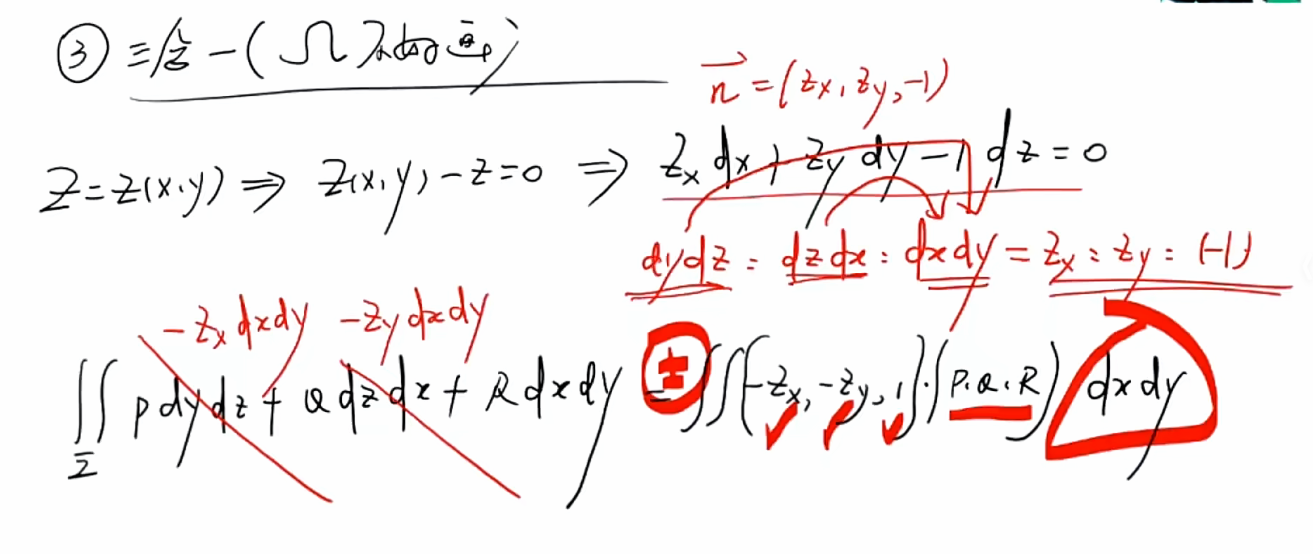 ③ 三合一(Ω不好画)
n⃗=(zx,zy,-1)
Z=z(x,y)⇒ z(x,y)-z=0 ⇒ zx dx+zy dy-1 dz=0
dydz:dzdx:dxdy=zx:zy:(-1)
-zx dxdy -zy dxdy
∬Σ Pdydz+Qdzdx+Rdxdy=±∬(-zx,-zy,1)·(P.Q.R)dxdy